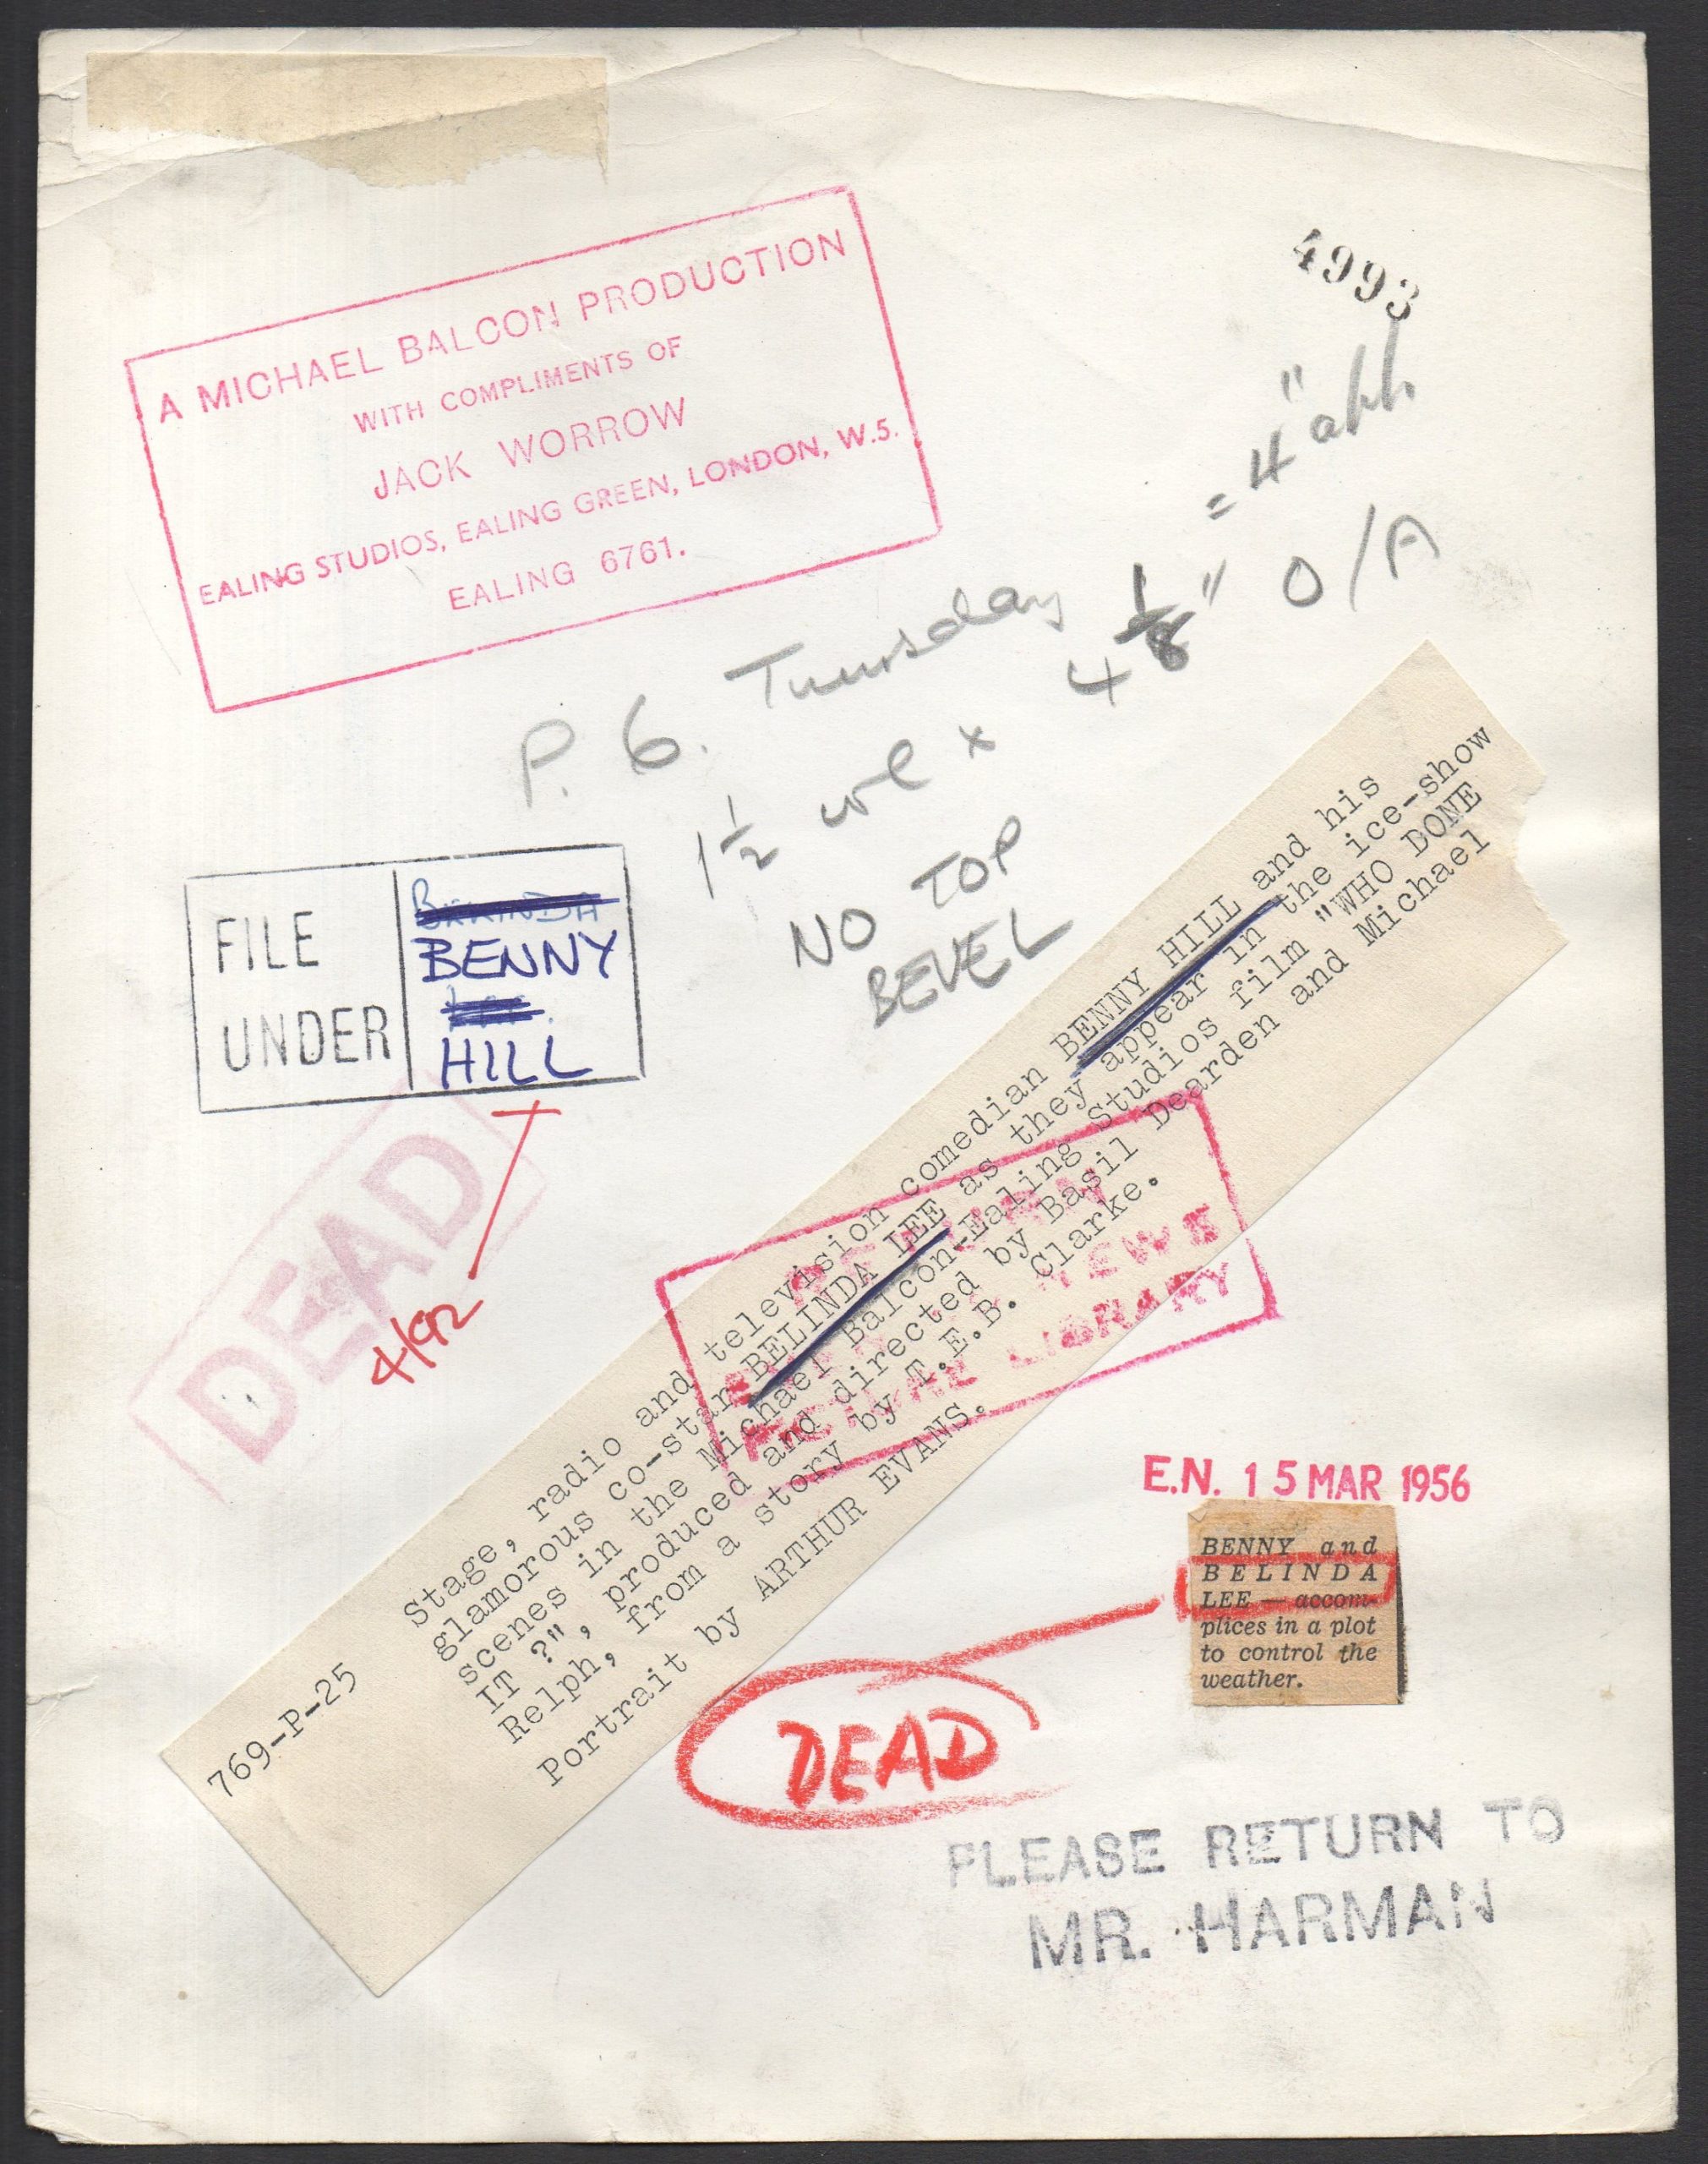 A MICHAEL BALCON PRODUCTION
WITH COMPLIMENTS OF
JACK WORROW
EALING STUDIOS, EALING GREEN, LONDON, W.5.
EALING 6761.
4993
= 4"
P. 6. Thursday
1½ x 4⅛" O/A
NO TOP
BEVEL
FILE
UNDER
BENNY
HILL
4/92
DEAD
769-P-25
Stage, radio and television comedian BENNY HILL and his
glamorous co-star BELINDA LEE as they appear in the ice-show
scenes in the Michael Balcon-Ealing Studios film "WHO DONE
IT ?", produced and directed by Basil Dearden and Michael
Relph, from a story by T.E.B. Clarke.
Portrait by ARTHUR EVANS.
LIBRARY
E.N. 15 MAR 1956
BENNY and
BELINDA
LEE — accom-
plices in a plot
to control the
weather.
DEAD
PLEASE RETURN TO
MR. HARMAN